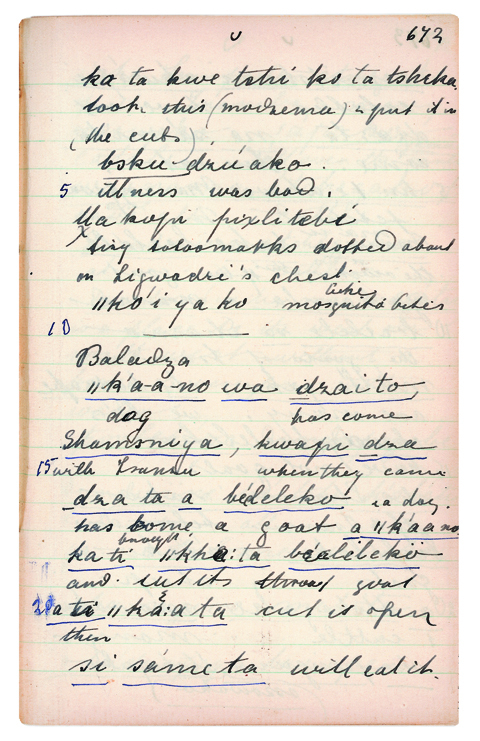 672
ka ta kwe tshi ko ta tsheka.
took this (modzema) & put it in
(the cubs)
bsku dzúako.
5 illness was bad.
tiny saloomatks dotted about
on Ligwadzi's chest
like
ǁko'i ya ko mosquito bites
10
Baladza
ǁk'a-a-no wa dzaito,
dog has come
Shamsniya, kwapi dza
15 with Tsannu when they came
dza ta a bédeleko
has come a goat a ǁk'aano
brought
ka ti ǁkha:ta béédélekö
and cut its throat goat
20 a ti ǁka:a ta cut is open
then
si sámeta will eat it.